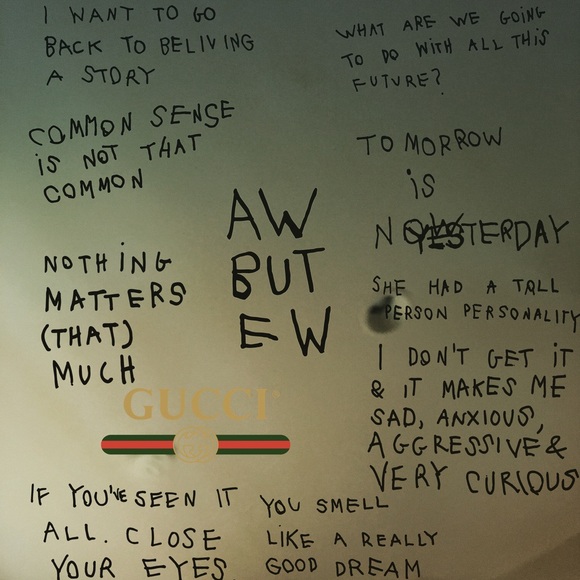 I WANT TO GO
BACK TO BELIVING
A STORY
COMMON SENSE
iS NOT THAT
COMMON
NOTHiNG
MATTERS
(THAT)
MUCH
AW
BUT
EW
WHAT ARE WE GOiNG
TO DO WiTH ALL THiS
FUTURE?
TOMORROW
iS
NOWTERDAY
SHE HAD A TALL
PERSON PERSONALiTY
I DON'T GET iT
& iT MAKES ME
SAD, ANXIOUS,
AGGRESSiVE &
VERY CURiOUS
GUCCI
IF YOU'VE SEEN IT
ALL. CLOSE
YOUR EYES
YOU SMELL
LIKE A REALLY
GOOD DREAM